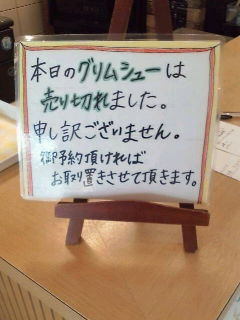 本日のグリムシューは
売り切れました。
申し訳ございません。
御予約頂ければ
お取り置きさせて頂きます。